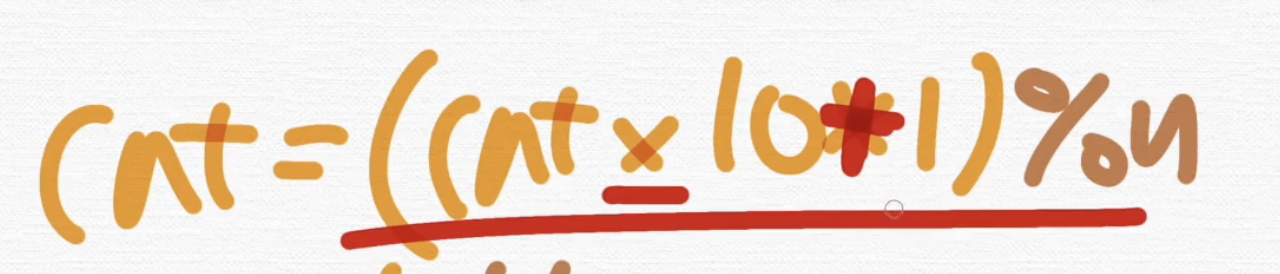 cnt = (cnt × 10 + 1) % n